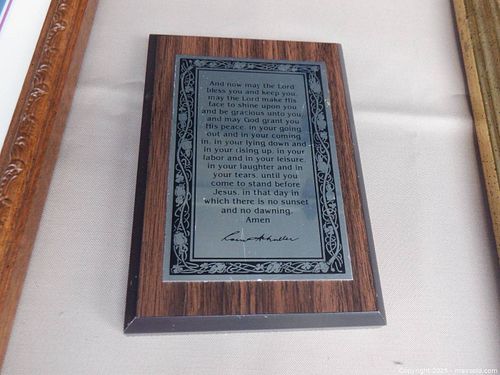 And now may the Lord
bless you and keep you,
may the Lord make His
face to shine upon you
and be gracious unto you
and may God grant you
His peace, in your going
out and in your coming
in, in your lying down and
in your rising up, in your
labor and in your leisure,
in your laughter and in
your tears, until you
come to stand before
Jesus, in that day in
which there is no sunset
and no dawning.
Amen